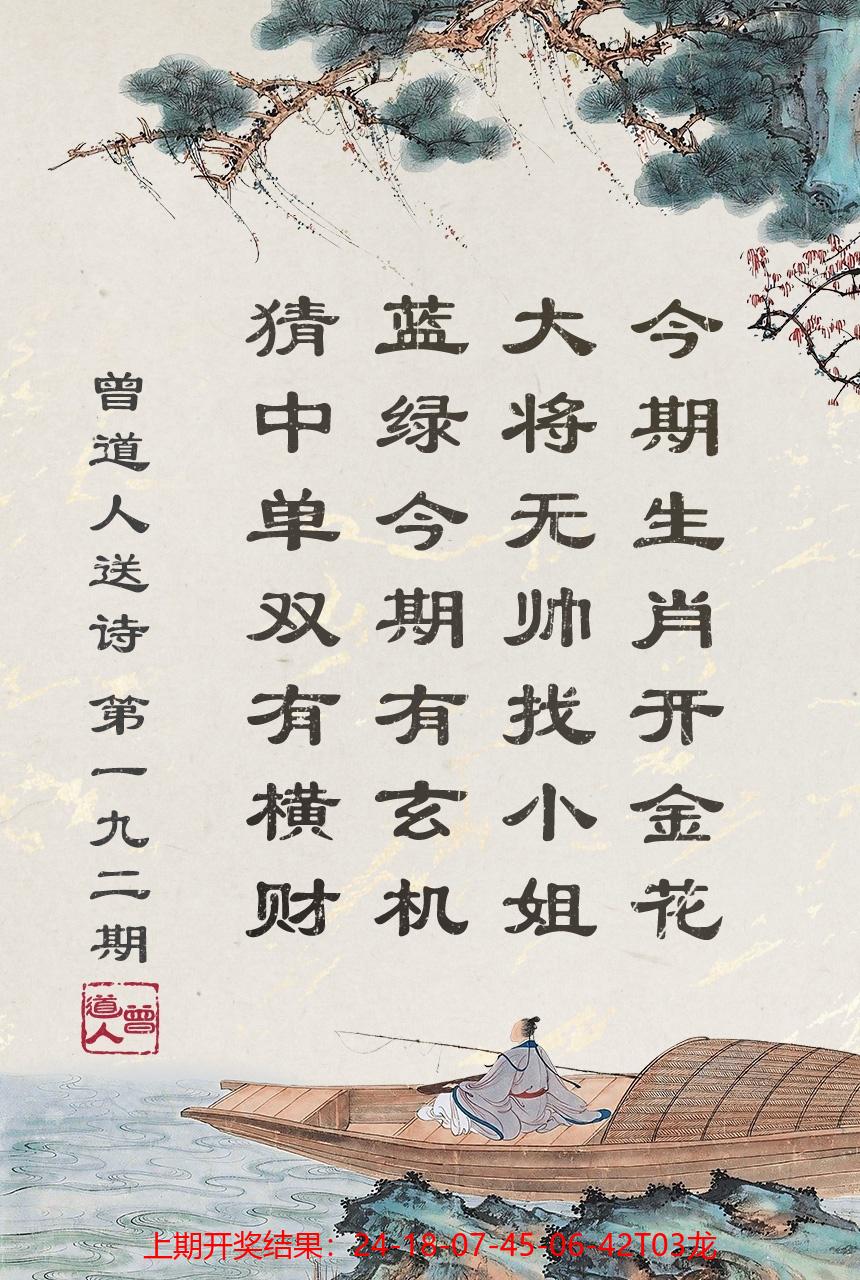 今期生肖开金花
大将无帅找小姐
蓝绿今期有玄机
猜中单双有横财
曾道人送诗 第一九二期
曾道人
上期开奖结果：24-18-07-45-06-42T03龙